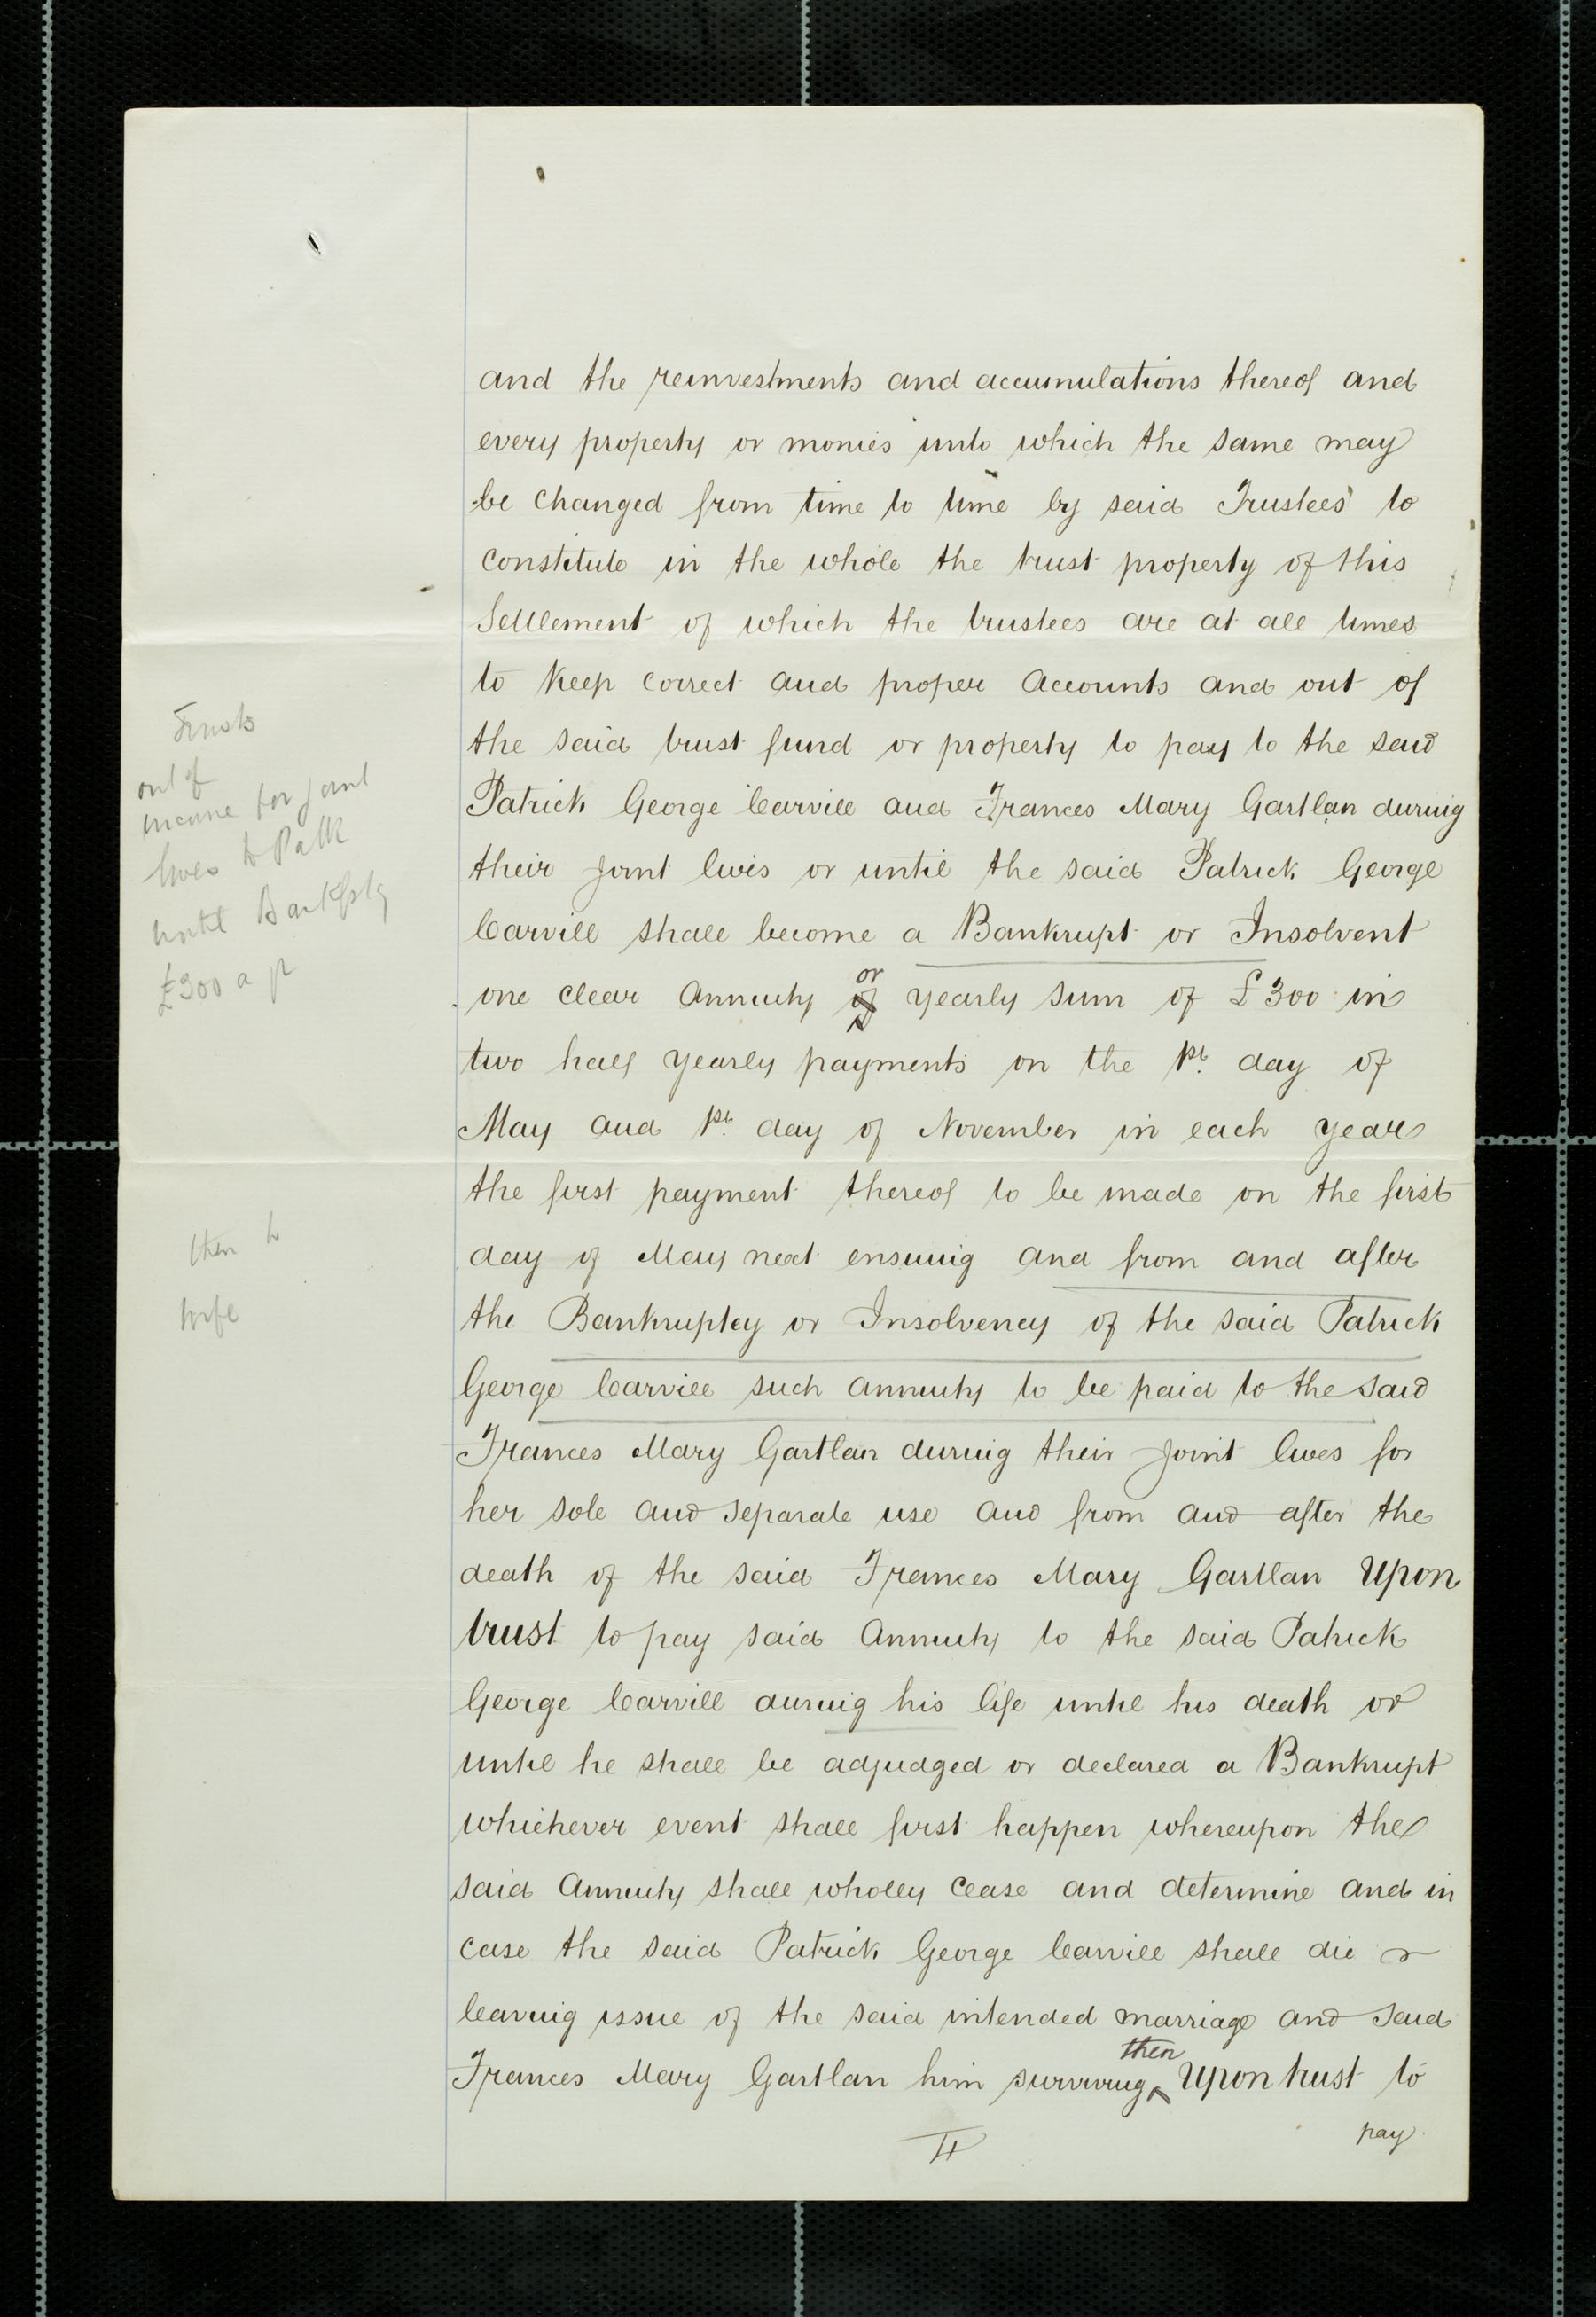 and the reinvestments and accumulations thereof and
every property or monies unto which the same may
be changed from time to time by said Trustees to
constitute in the whole the trust property of this
Settlement of which the trustees are at all times
to keep correct and proper accounts and out of
the said trust fund or property to pay to the said
Patrick George Carvill and Frances Mary Gartlan during
their joint lives or until the said Patrick George
Carvill shall become a Bankrupt or Insolvent
one clear Annuity or yearly sum of £300 in
two half yearly payments on the 1st. day of
May and 1st. day of November in each year
the first payment thereof to be made on the first
day of May next ensuing and from and after
the Bankruptcy or Insolvency of the said Patrick
George Carvill such annuity to be paid to the said
Frances Mary Gartlan during their joint lives for
her sole and separate use and from and after the
death of the said Frances Mary Gartlan Upon
trust to pay said Annuity to the said Patrick
George Carvill during his life until his death or
until he shall be adjudged or declared a Bankrupt
whichever event shall first happen whereupon the
said Annuity shall wholly cease and determine and in
case the said Patrick George Carvill shall die
leaving issue of the said intended marriage and said
Frances Mary Gartlan him surviving then Upon trust to
pay
Trusts
out of
income for joint
lives to Patk
until Bankptcy
£300 a yr
then to
wife